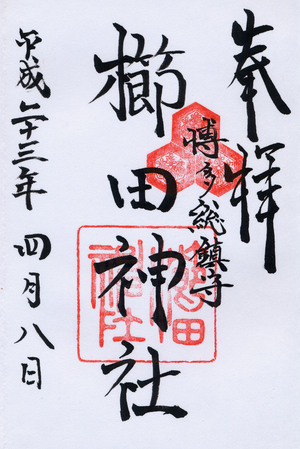 奉拝
博多総鎮守
櫛田神社
櫛田神社
平成二十三年四月八日